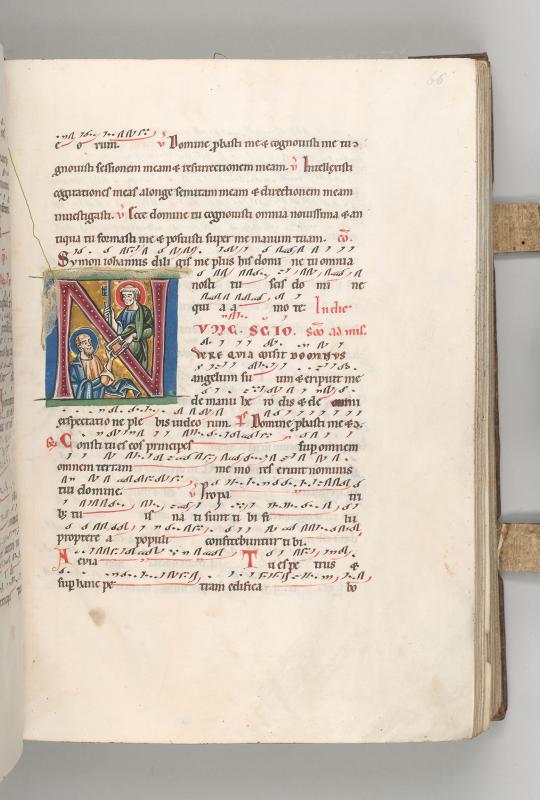 66
e o rum. V Domine p̱basti me & cognouisti me tu
gnouisti sessionem meam & resurrectionem meam. V Intellexisti
cogitationes meas a longe semitam meam & directionem meam
inuestigasti. V Ecce domine tu cognouisti omnia nouissima & an
tiqua tu formasti me & posuisti super me manum tuam. co.
Symon iohannis dili gis me plus his domi ne tu omnia
nosti tu scis do mi ne
quia a mo te. In die
N VNC SCIO
VERE QVIA MISIT DOMINVS
angelum su um & eripuit me
de manu he ro dis & de omni
exspectatio ne ple bis iudeo rum. Ps Domine p̱basti me &
Constitu es eos principes sup omnem
omnem terram me mo res erunt nominis
tui domine. V Propa tri
bꝫ tu is na ti sunt ti bi fi lii
propterea populi confitebuntur ti bi.
A euia Tu es pe trus &
sup hanc pe tram edifica bo